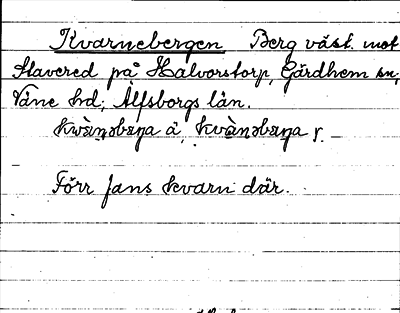 Kvarnebergen Berg väst. mot
Stavered på Halvorstorp, Gärdhem sn,
Väne hd, Älfsborgs län.
Förr fans kvarn där.